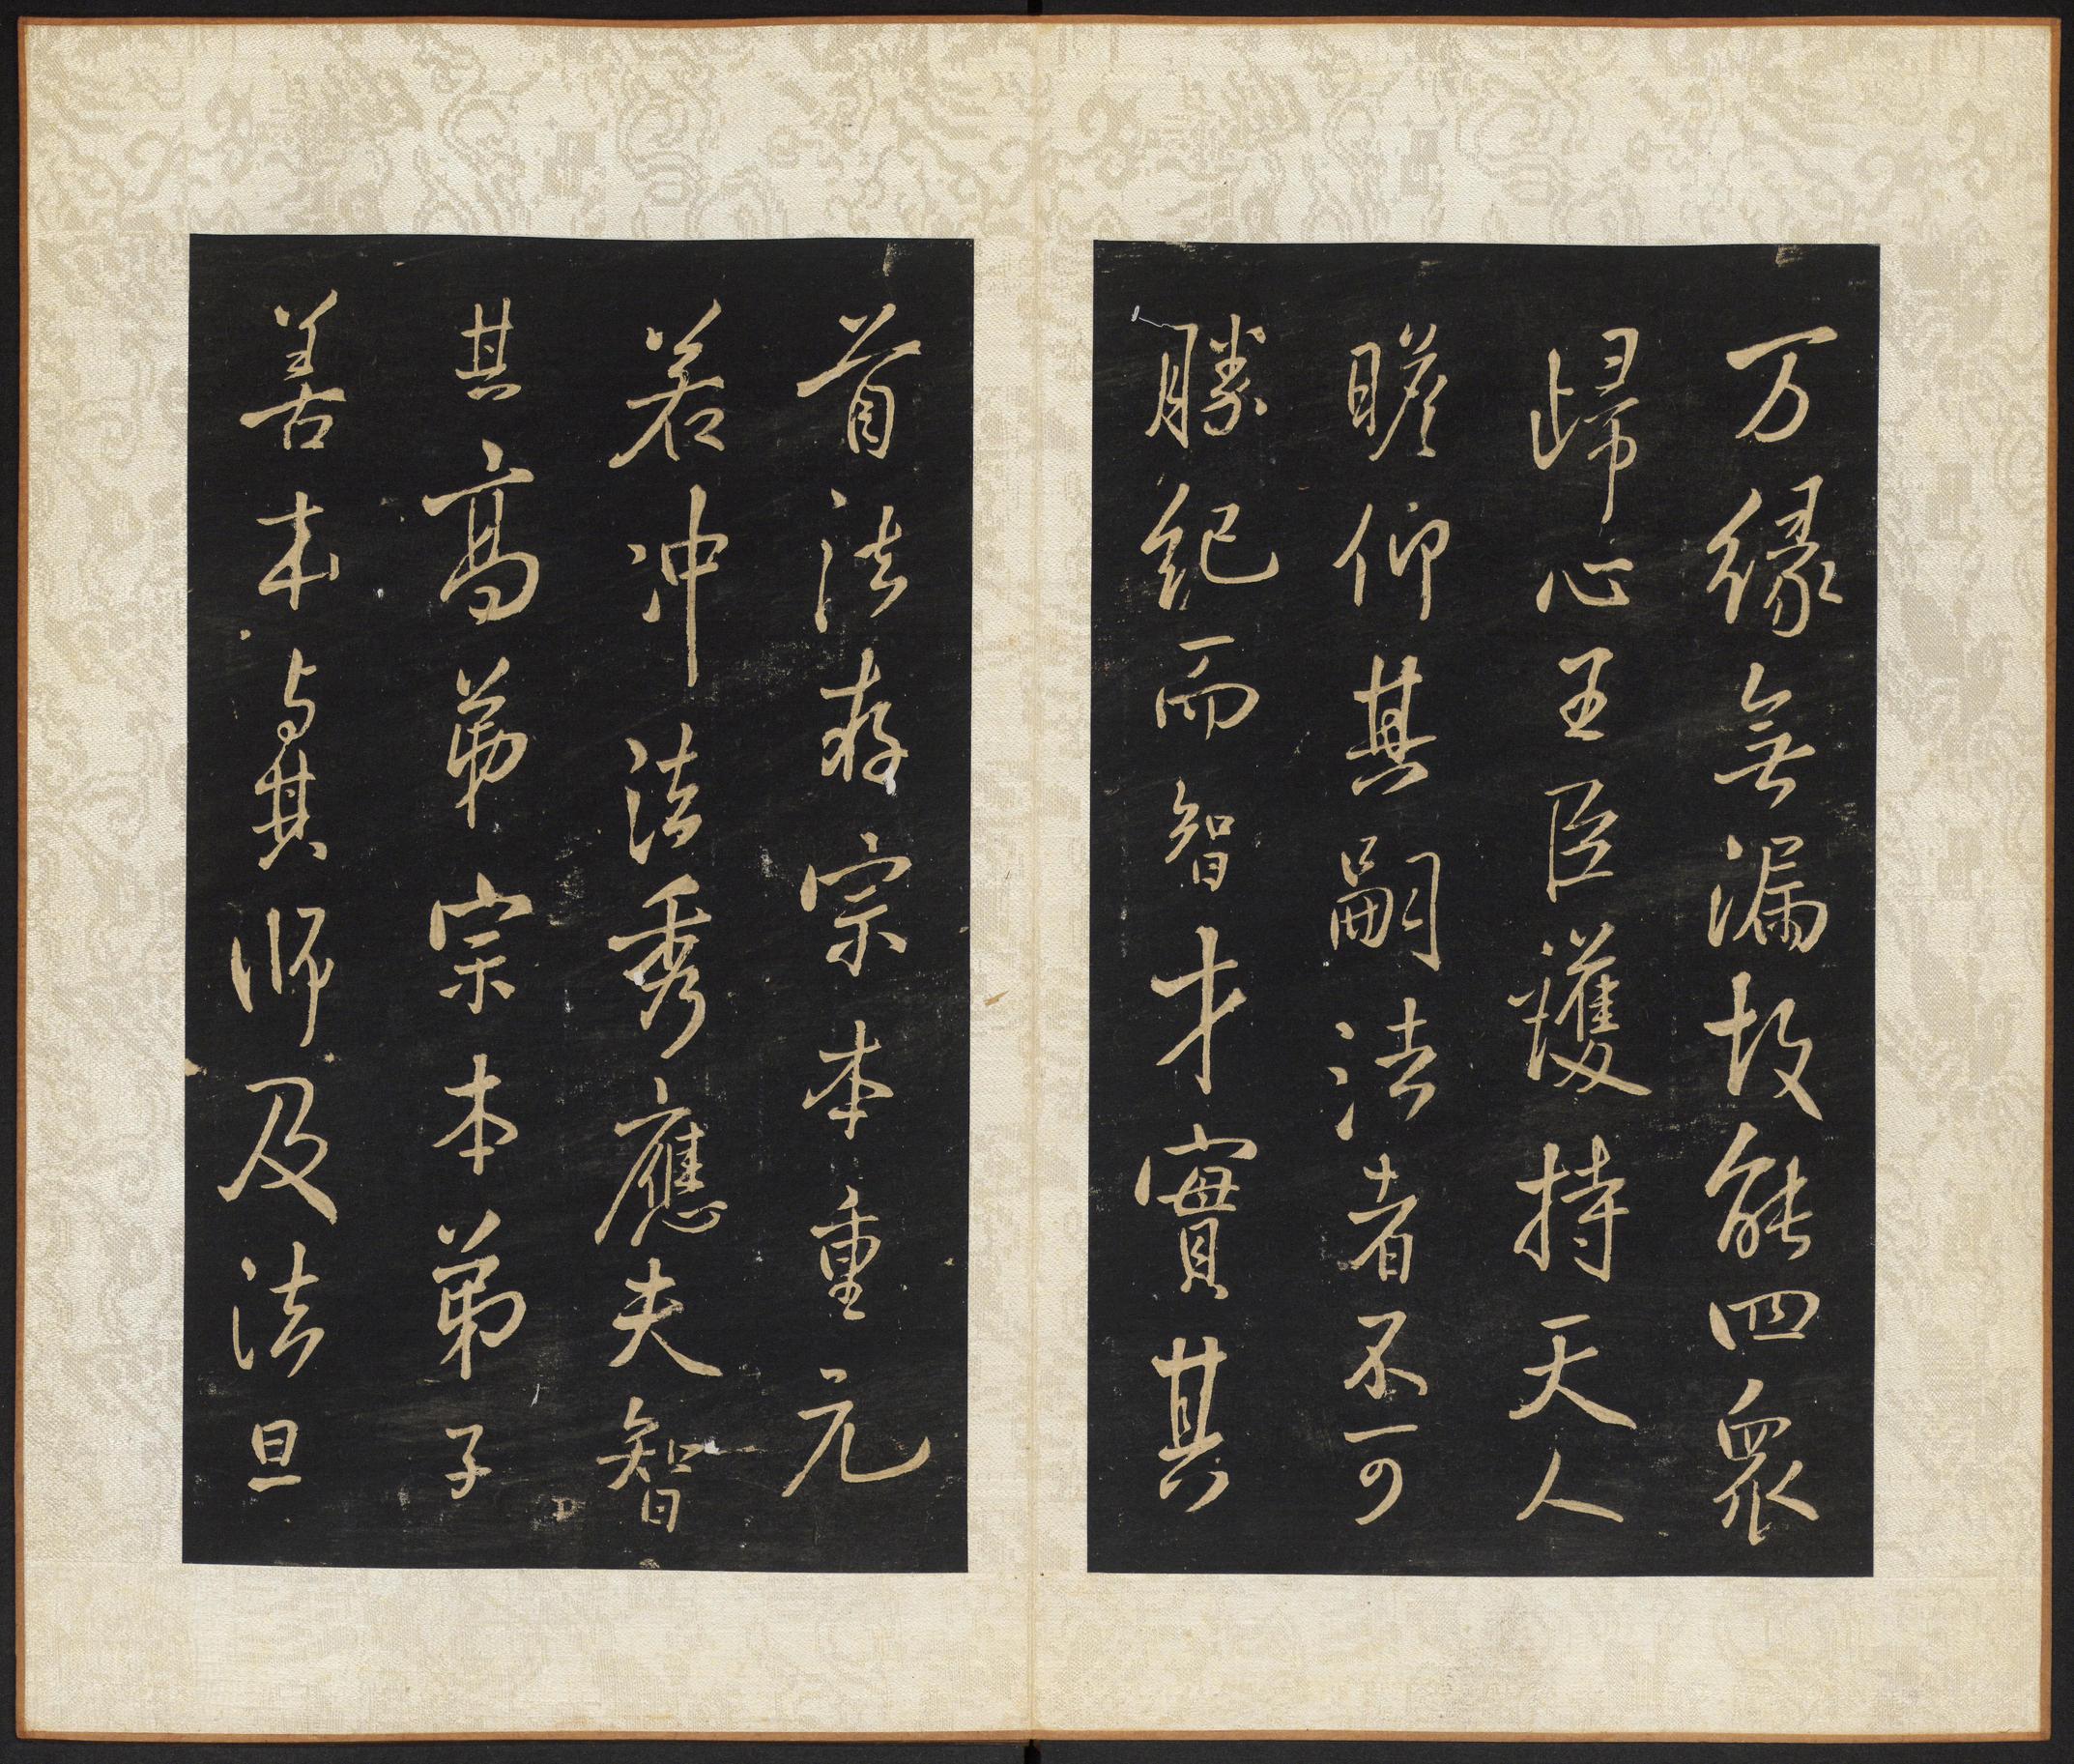 万縁無漏故能四衆
歸心王臣護持天人
瞻仰其嗣法者不可
勝紀而智才實其
首法存宗本重元
若冲法秀應夫智
其高弟宗本弟子
善本与其師及法
旦